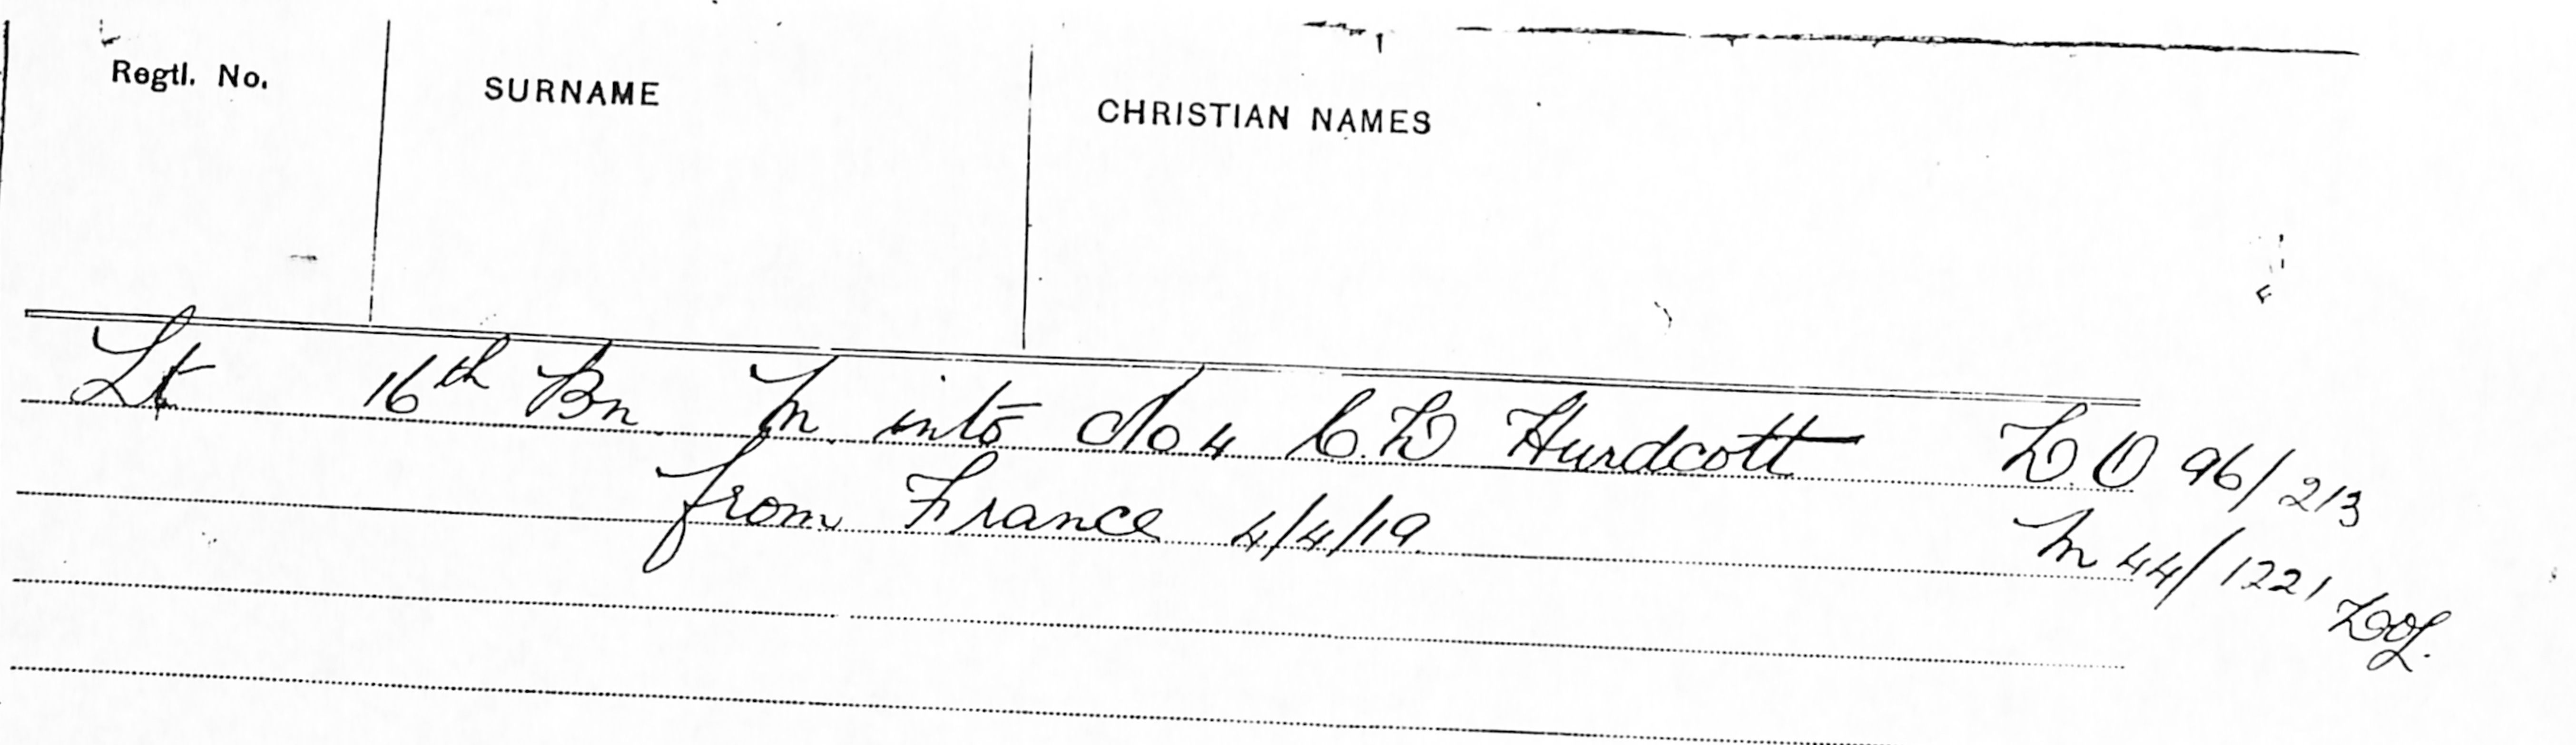 Regtl. No. SURNAME CHRISTIAN NAMES
Lt 16th Bn M. into No 4 C.D Hurdcott D.O 96/213
from France 4/4/19. M 44/1221